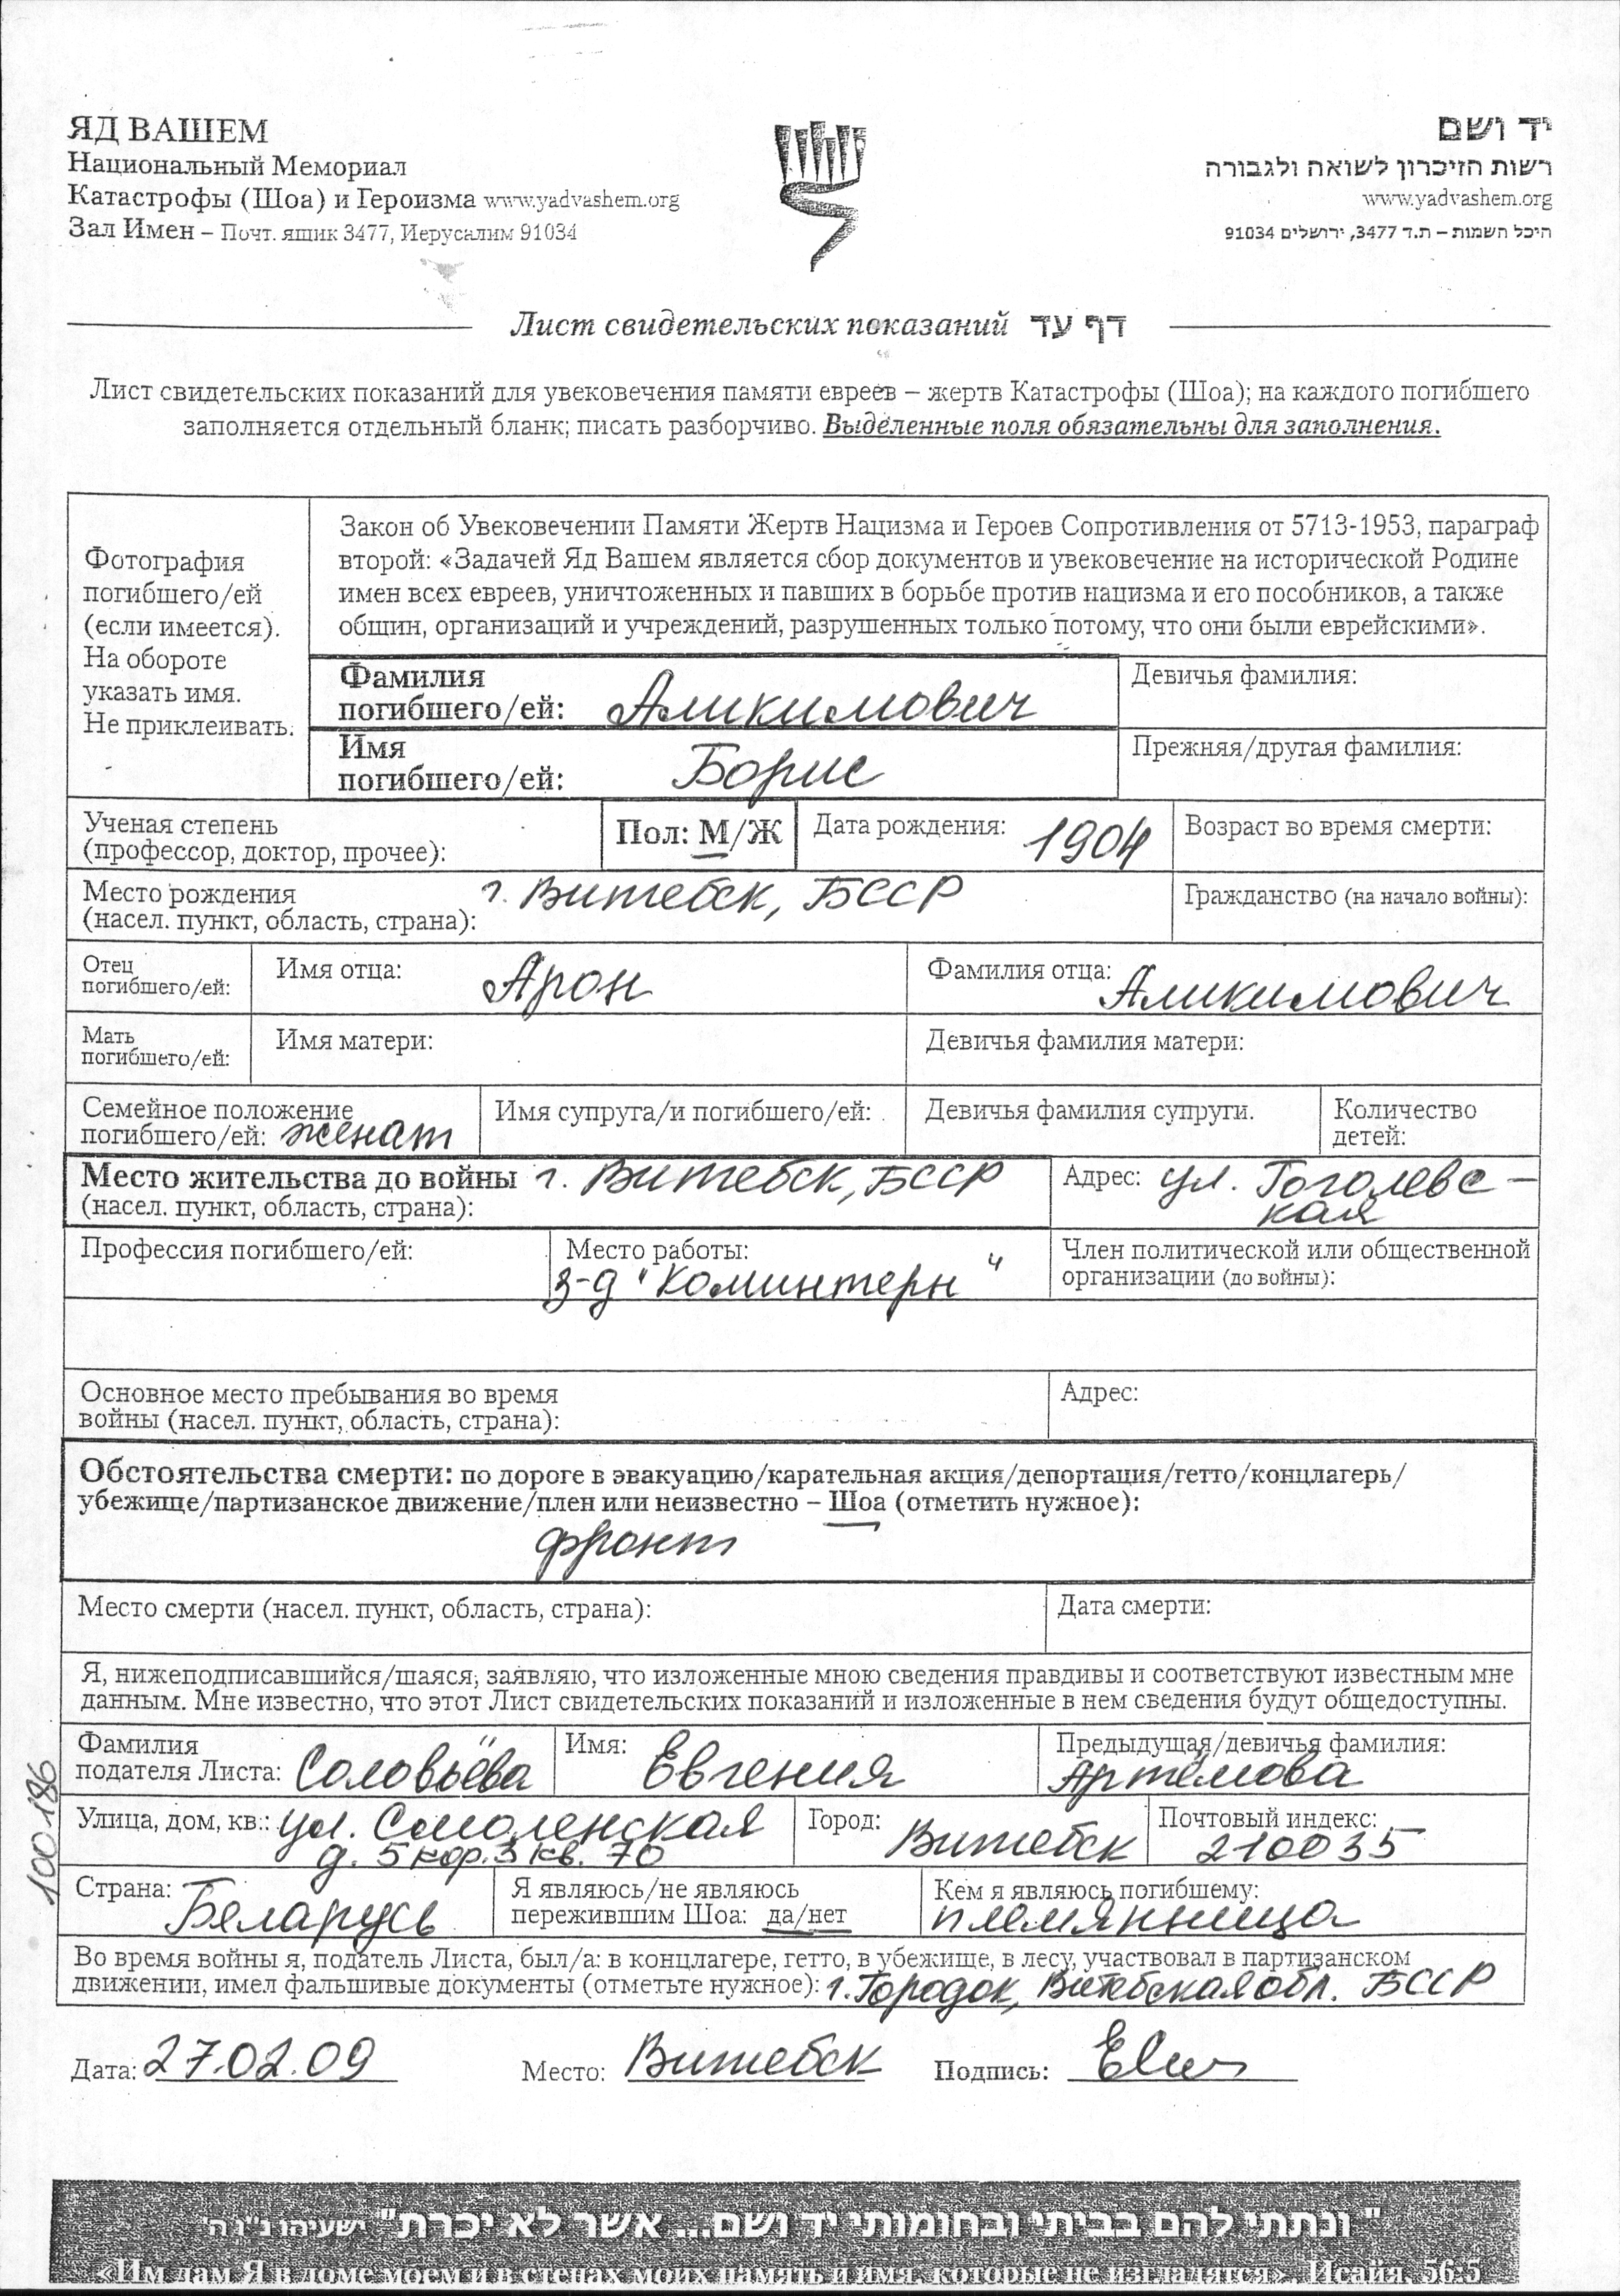 ЯД ВАШЕМ
Национальный Мемориал
Катастрофы (Шоа) и Героизма www.yadvashem.org
Зал Имен – Почт. ящик 3477, Иерусалим 91034
יד ושם
רשות הזיכרון לשואה ולגבורה
www.yadvashem.org
היכל השמות – ת.ד 3477, ירושלים 91034
Лист свидетельских показаний דף עד
Лист свидетельских показаний для увековечения памяти евреев – жертв Катастрофы (Шоа); на каждого погибшего
заполняется отдельный бланк; писать разборчиво. Выделенные поля обязательны для заполнения.
Фотография
погибшего/ей
(если имеется).
На обороте
указать имя.
Не приклеивать.
Закон об Увековечении Памяти Жертв Нацизма и Героев Сопротивления от 5713-1953, параграф
второй: «Задачей Яд Вашем является сбор документов и увековечение на исторической Родине
имен всех евреев, уничтоженных и павших в борьбе против нацизма и его пособников, а также
общин, организаций и учреждений, разрушенных только потому, что они были еврейскими».
Фамилия
погибшего/ей: Аликимович
Девичья фамилия:
Имя
погибшего/ей: Борис
Прежняя/другая фамилия:
Ученая степень
(профессор, доктор, прочее):
Пол: М/Ж
Дата рождения: 1904
Возраст во время смерти:
Место рождения г. Витебск, БССР
(насел. пункт, область, страна):
Гражданство (на начало войны):
Отец
погибшего/ей:
Имя отца: Арон
Фамилия отца: Аликимович
Мать
погибшего/ей:
Имя матери:
Девичья фамилия матери:
Семейное положение
погибшего/ей: женат
Имя супруга/и погибшего/ей:
Девичья фамилия супруги.
Количество
детей:
Место жительства до войны г. Витебск, БССР
(насел. пункт, область, страна):
Адрес: ул. Гоголевс-
кая
Профессия погибшего/ей:
Место работы:
з-д "Коминтерн"
Член политической или общественной
организации (до войны):
Основное место пребывания во время
войны (насел. пункт, область, страна):
Адрес:
Обстоятельства смерти: по дороге в эвакуацию/карательная акция/депортация/гетто/концлагерь/
убежище/партизанское движение/плен или неизвестно – Шоа (отметить нужное):
фронт
Место смерти (насел. пункт, область, страна):
Дата смерти:
Я, нижеподписавшийся/шаяся, заявляю, что изложенные мною сведения правдивы и соответствуют известным мне
данным. Мне известно, что этот Лист свидетельских показаний и изложенные в нем сведения будут общедоступны.
Фамилия
подателя Листа: Соловьёва
Имя: Евгения
Предыдущая/девичья фамилия:
Артёмова
Улица, дом, кв.: ул. Смоленская
д. 5 кор. 3 кв. 70
Город: Витебск
Почтовый индекс:
210035
Страна: Беларусь
Я являюсь/не являюсь
пережившим Шоа: да/нет
Кем я являюсь погибшему:
племянница
Во время войны я, податель Листа, был/а: в концлагере, гетто, в убежище, в лесу, участвовал в партизанском
движении, имел фальшивые документы (отметьте нужное): г. Городок, Витебская обл. БССР
100186
Дата: 27.02.09
Место: Витебск
Подпись:
"ונתתי להם בביתי ובחומותי יד ושם... אשר לא יכרת" ישעיהו נ"ו ה'
«Им дам Я в доме моем и в стенах моих память и имя, которые не изгладятся». Исайя, 56:5